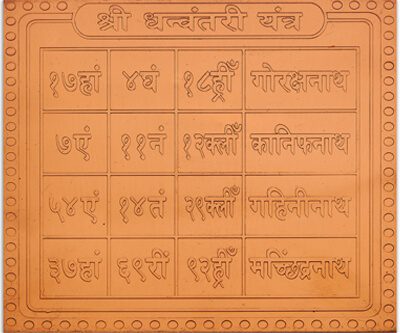 श्री धन्वंतरी यंत्र
१७हां ४घं १८ह्रीँ गोरक्षनाथ
७एं ११नं १२क्लीँ कानिफनाथ
५४एं १४तं २९क्लीँ गहिनीनाथ
३७हां ६९रीं ९२ह्रीँ मच्छिंद्रनाथ